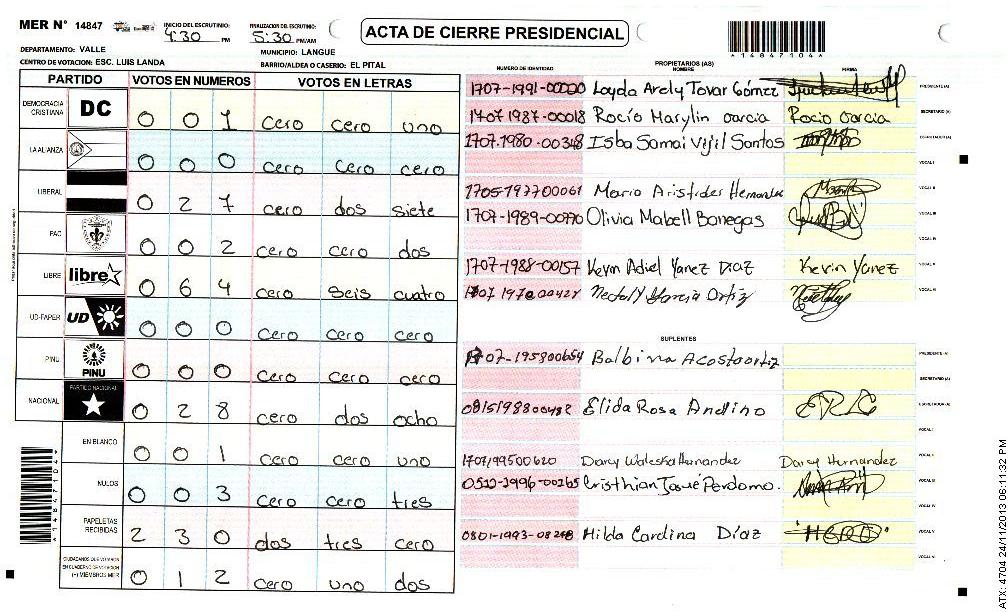 MER N° 14847
INICIO DEL ESCRUTINIO:
4:30 PM
FINALIZACION DEL ESCRUTINIO:
5:30 PM/AM
ACTA DE CIERRE PRESIDENCIAL
*14847104*
DEPARTAMENTO: VALLE
MUNICIPIO: LANGUE
CENTRO DE VOTACION: ESC. LUIS LANDA
BARRIO/ALDEA O CASERIO: EL PITAL
PARTIDO VOTOS EN NUMEROS VOTOS EN LETRAS
DEMOCRACIA CRISTIANA DC 0 0 1 cero cero uno
LA ALIANZA 0 0 0 cero cero cero
LIBERAL 0 2 7 cero dos siete
PAC 0 0 2 cero cero dos
LIBRE libre 0 6 4 cero seis cuatro
UD-FAPER UD 0 0 0 cero cero cero
PINU PINU 0 0 0 cero cero cero
NACIONAL PARTIDO NACIONAL 0 2 8 cero dos ocho
EN BLANCO 0 0 1 cero cero uno
NULOS 0 0 3 cero cero tres
PAPELETAS RECIBIDAS 2 3 0 dos tres cero
CIUDADANOS QUE VOTARON EN CUADERNO DE VOTACION (-) MIEMBROS MER 0 1 2 cero uno dos
PROPIETARIOS (AS)
NUMERO DE IDENTIDAD NOMBRE FIRMA
Loyda Arely Tovar Gómez PRESIDENTE (A)
1707-1987-00018 Rocío Marylin Garcia Rocio Garcia SECRETARIO (A)
1707-1980-00348 Isba Samai Vijil Santos ESCRUTADOR (A)
VOCAL I
1705-197700061 Mario Aristides Hernandez VOCAL II
1707-1989-00770 Olivia Mabell Banegas VOCAL III
VOCAL IV
1707-1988-00157 Kevin Adiel Yanez Diaz Kevin Yanez VOCAL V
Garcia Ortiz VOCAL VI
SUPLENTES
1707-195800654 Balbina Acosta ortiz PRESIDENTE (A)
SECRETARIO (A)
0815198800482 Elida Rosa Andino ESCRUTADOR (A)
VOCAL I
1707199500620 Darcy Waleska Hernandez Darcy Hernandez VOCAL II
0510-1996-00265 Cristhian Josué Perdomo. VOCAL III
VOCAL IV
0801-1993-08248 Hilda Carolina Díaz VOCAL V
VOCAL VI
*14847104*
ATX: 4704 24/11/2013 06:11:32 PM